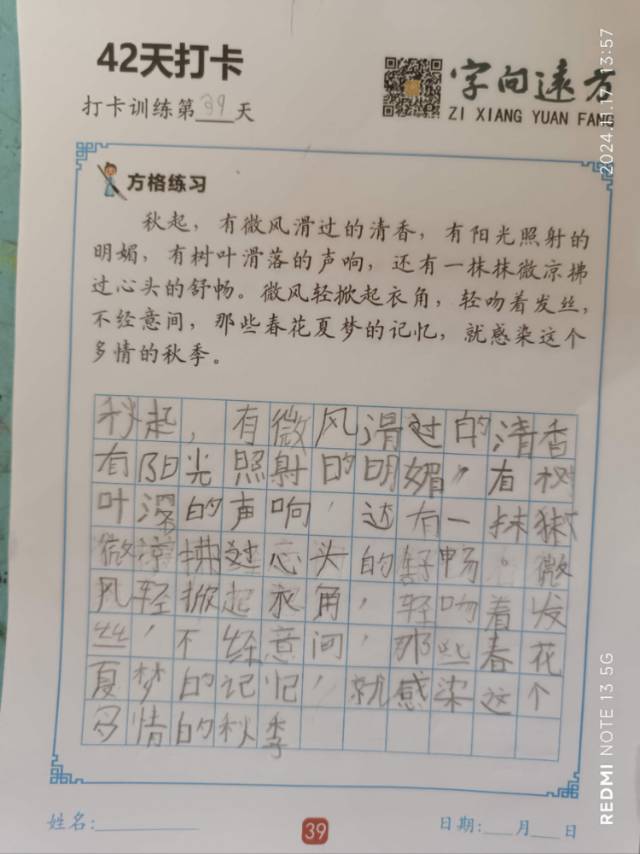 42天打卡
打卡训练第39天
字向远方
ZI XIANG YUAN FANG
方格练习
秋起，有微风滑过的清香，有阳光照射的
明媚，有树叶滑落的声响，还有一抹抹微凉拂
过心头的舒畅。微风轻掀起衣角，轻吻着发丝，
不经意间，那些春花夏梦的记忆，就感染这个
多情的秋季。
秋起，有微风滑过的清香
有阳光照射的明媚，有树
叶 的声响，还有一抹抹
微凉拂过心头的舒畅。微
风轻掀起衣角，轻吻着发
丝，不经意间，那些春花
夏梦的记忆，就感染这个
多情的秋季
姓名:
39
日期: 月 日
REDMI NOTE 13 5G
2024.11.17 13:57